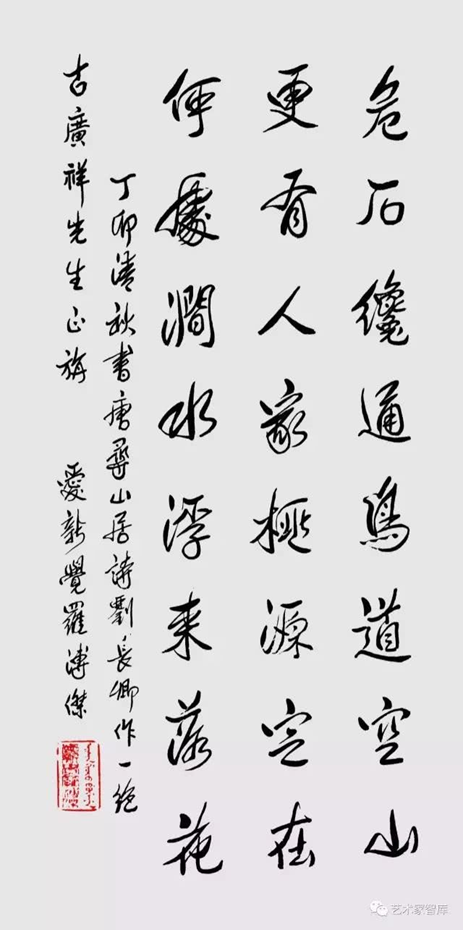 危石纔通鳥道空山
更有人家桃源定在
何處澗水浮来落花
丁卯清秋書唐尋山居詩劉長卿作一绝
古廣祥先生正 愛新覺羅溥傑
艺术家智库